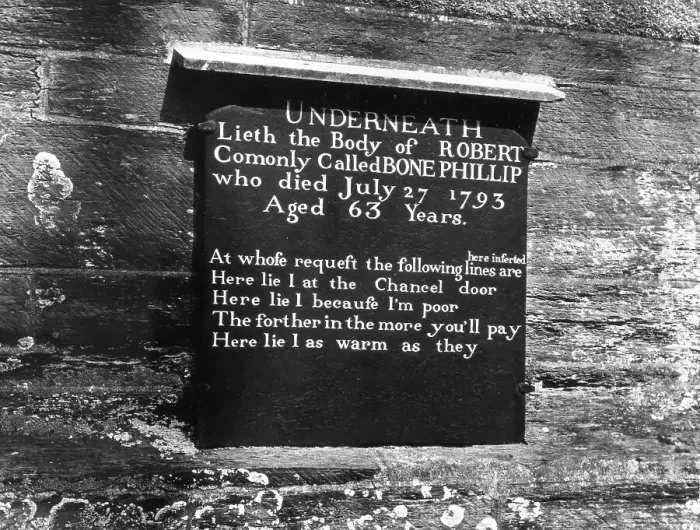 UNDERNEATH
Lieth the Body of ROBERT
Comonly Called BONE PHILLIP
who died July 27 1793
Aged 63 Years.
At whoſe requeſt the following lines are here inſerted
Here lie I at the Chancel door
Here lie I becauſe I'm poor
The forther in the more you'll pay
Here lie I as warm as they